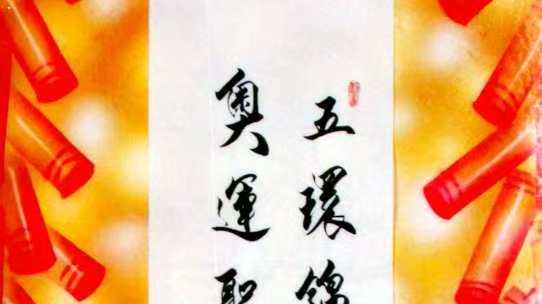 五環錦
奧運聖